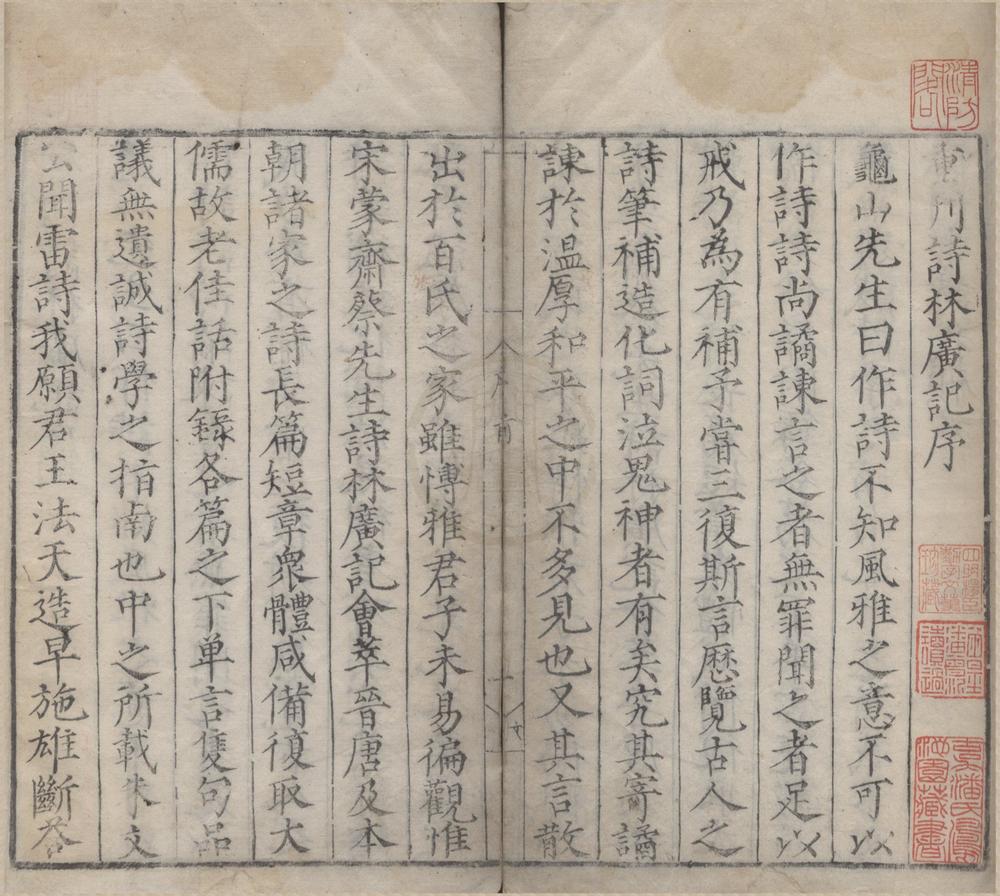 重刊詩林廣記序
龜山先生曰作詩不知風雅之意不可以
作詩詩尚譎諫言之者無罪聞之者足以
戒乃為有補予甞三復斯言歷覽古人之
詩筆補造化詞泣鬼神者有矣究其寄譎
諫於温厚和平之中不多見也又其言散
出於百氏之家雖愽雅君子未易徧觀惟
宋蒙齋蔡先生詩林廣記會萃晉唐及本
朝諸家之詩長篇短章衆體咸備復取大
儒故老佳話附錄各篇之下单言隻句品
議無遺誠詩學之指南也中之所載朱文
公聞雷詩我願君王法天造早施雄斷荅